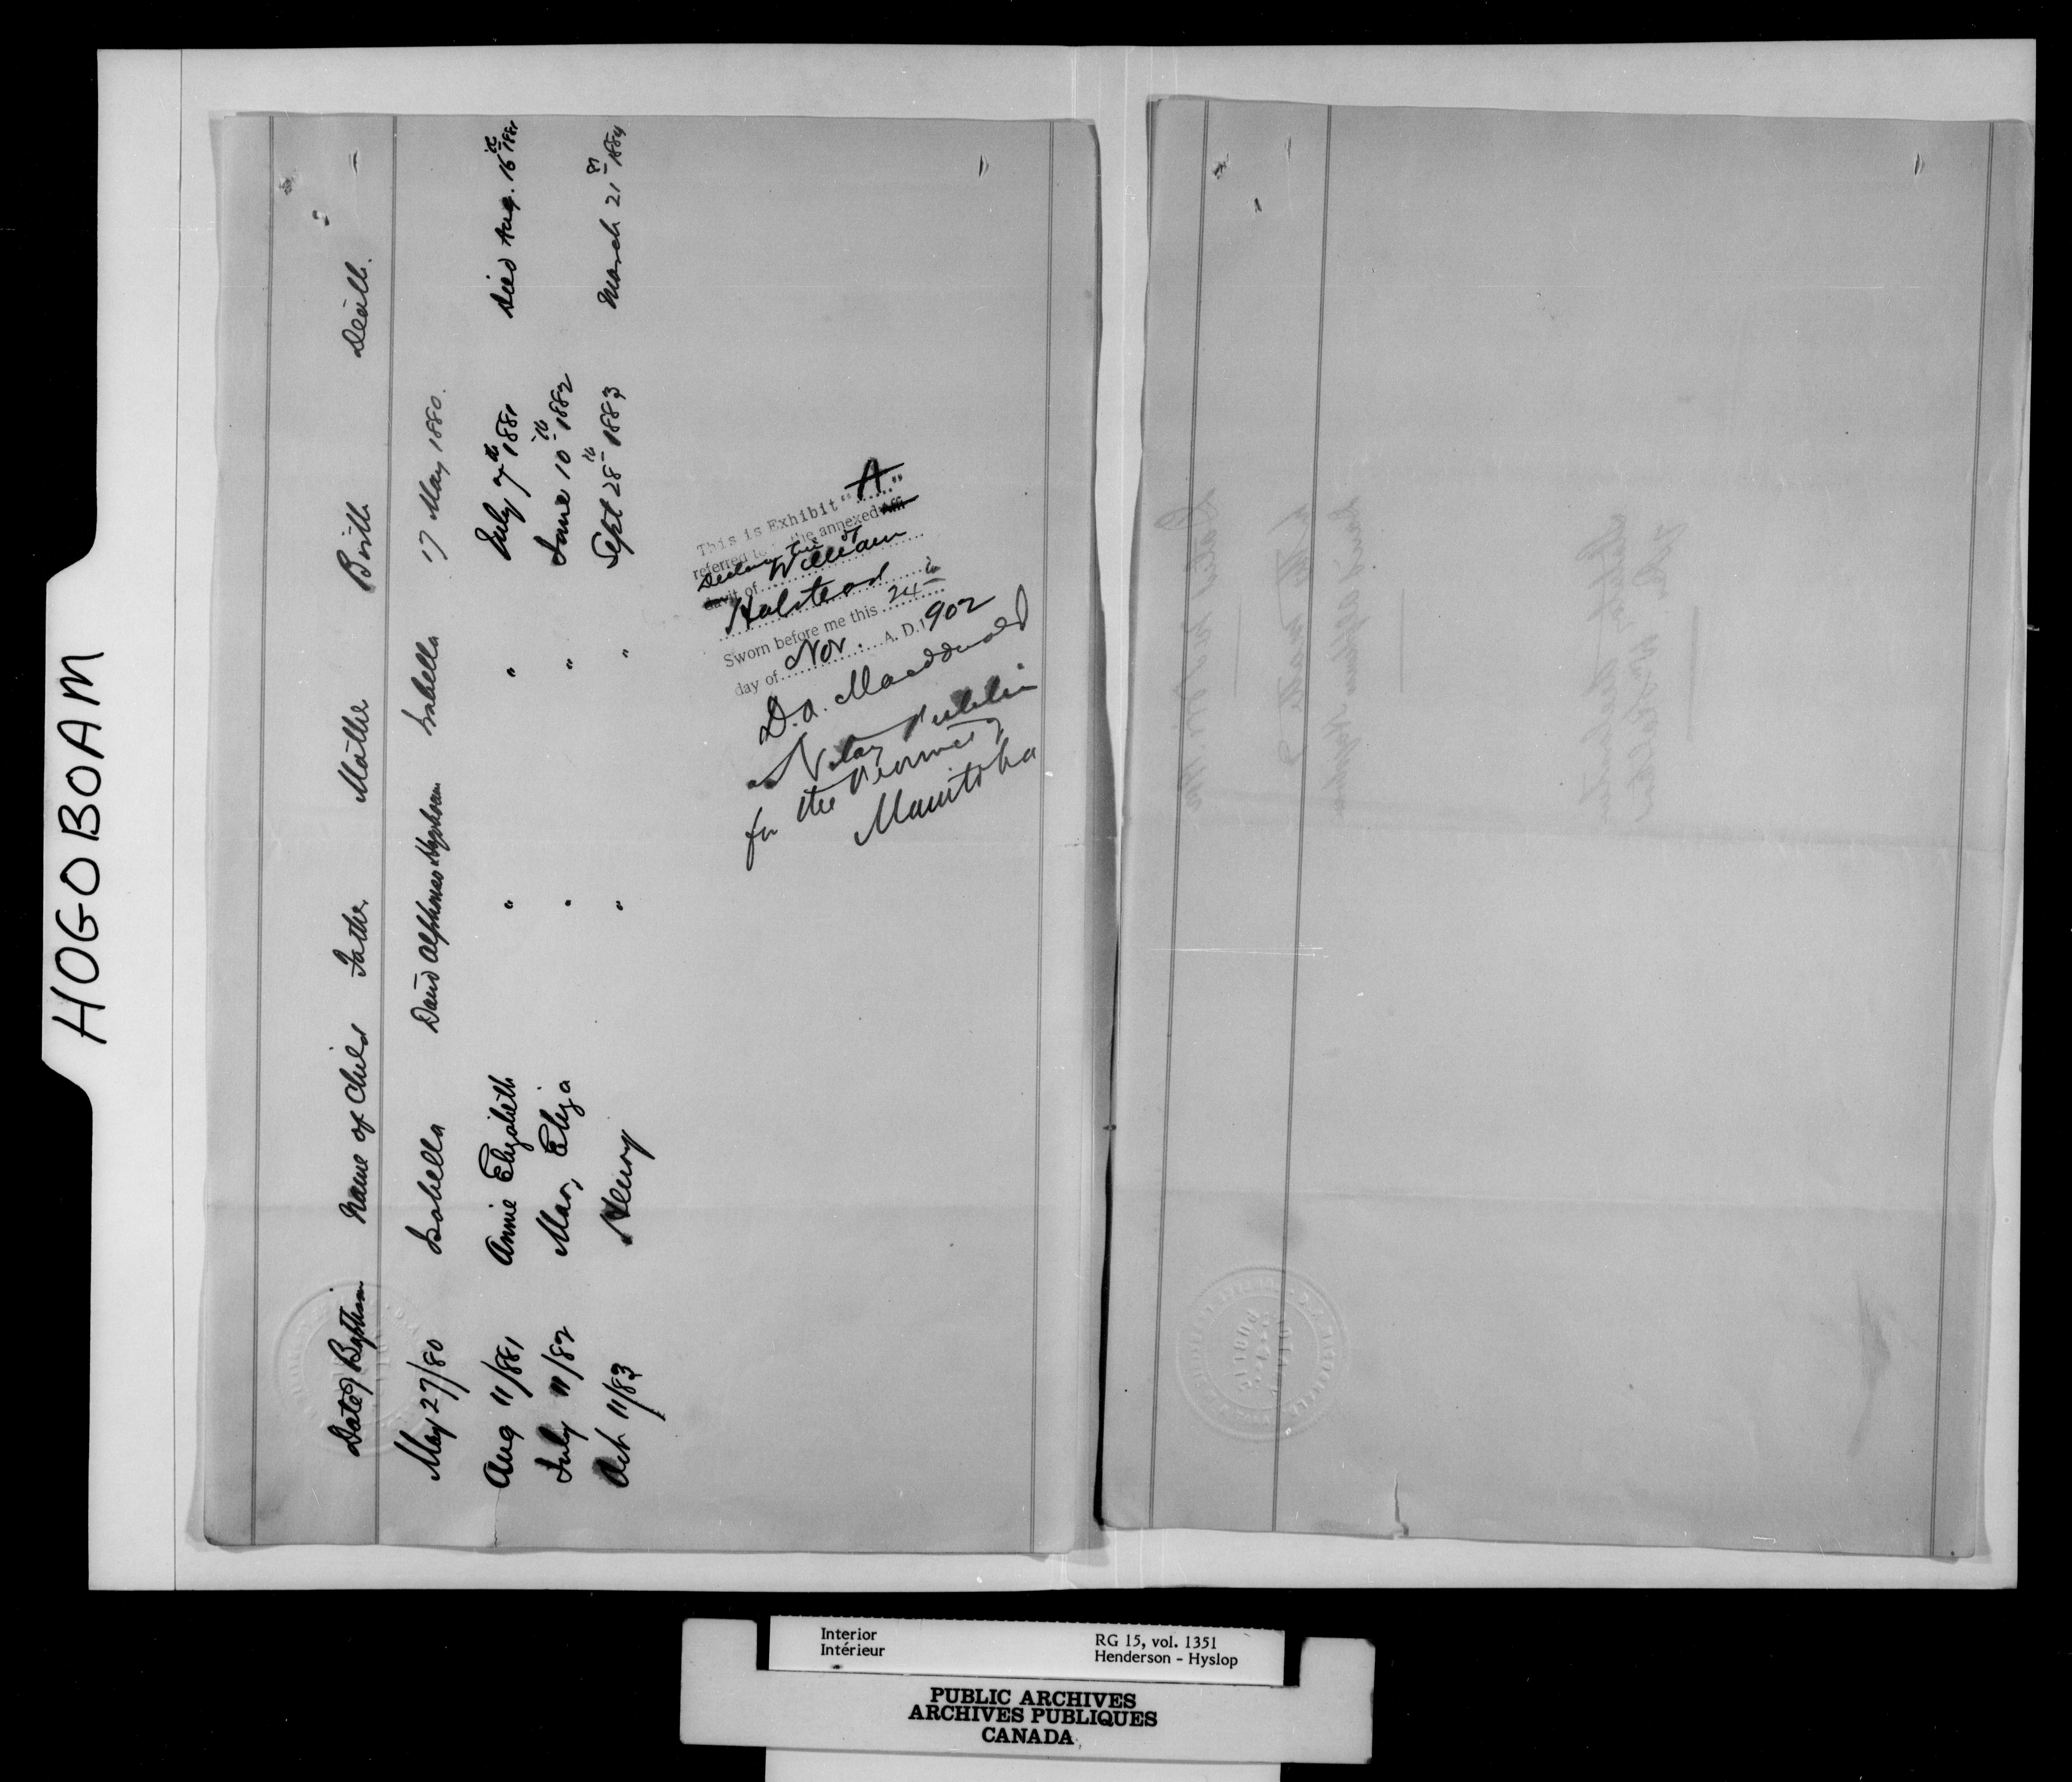 HOGOBOAM
Date of Baptism Name of Child Father Mother Birth Death.
May 27/80 Isabella David Alphonso Hogoboam Isabella 17 May 1880.
Aug 11/881 Annie Elizabeth " " July 7th 1881 Died Aug. 16th 1881
July 11/82 Mary Eliza " " June 10th 1882
Oct 11/83 Henry " " Sept 28th 1883 March 21st 1884
This is Exhibit "A"
referred to the annexed Affi
Declaration of
davit of William
Halstead
Sworn before me this 24th
day of Nov. A. D. 1902
D.A. Macdonald
A Notary Public
for the Province of
Manitoba
Interior
Intérieur
RG 15, vol. 1351
Henderson - Hyslop
PUBLIC ARCHIVES
ARCHIVES PUBLIQUES
CANADA